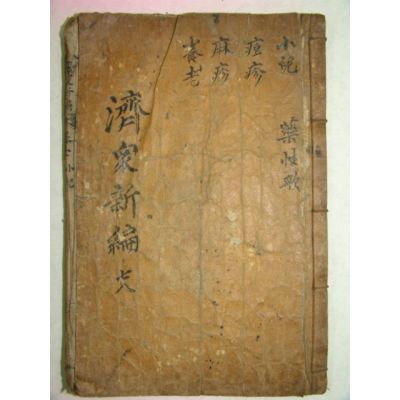 小兒 藥性歌
痘疹
麻疹
養老
濟衆新編 七八